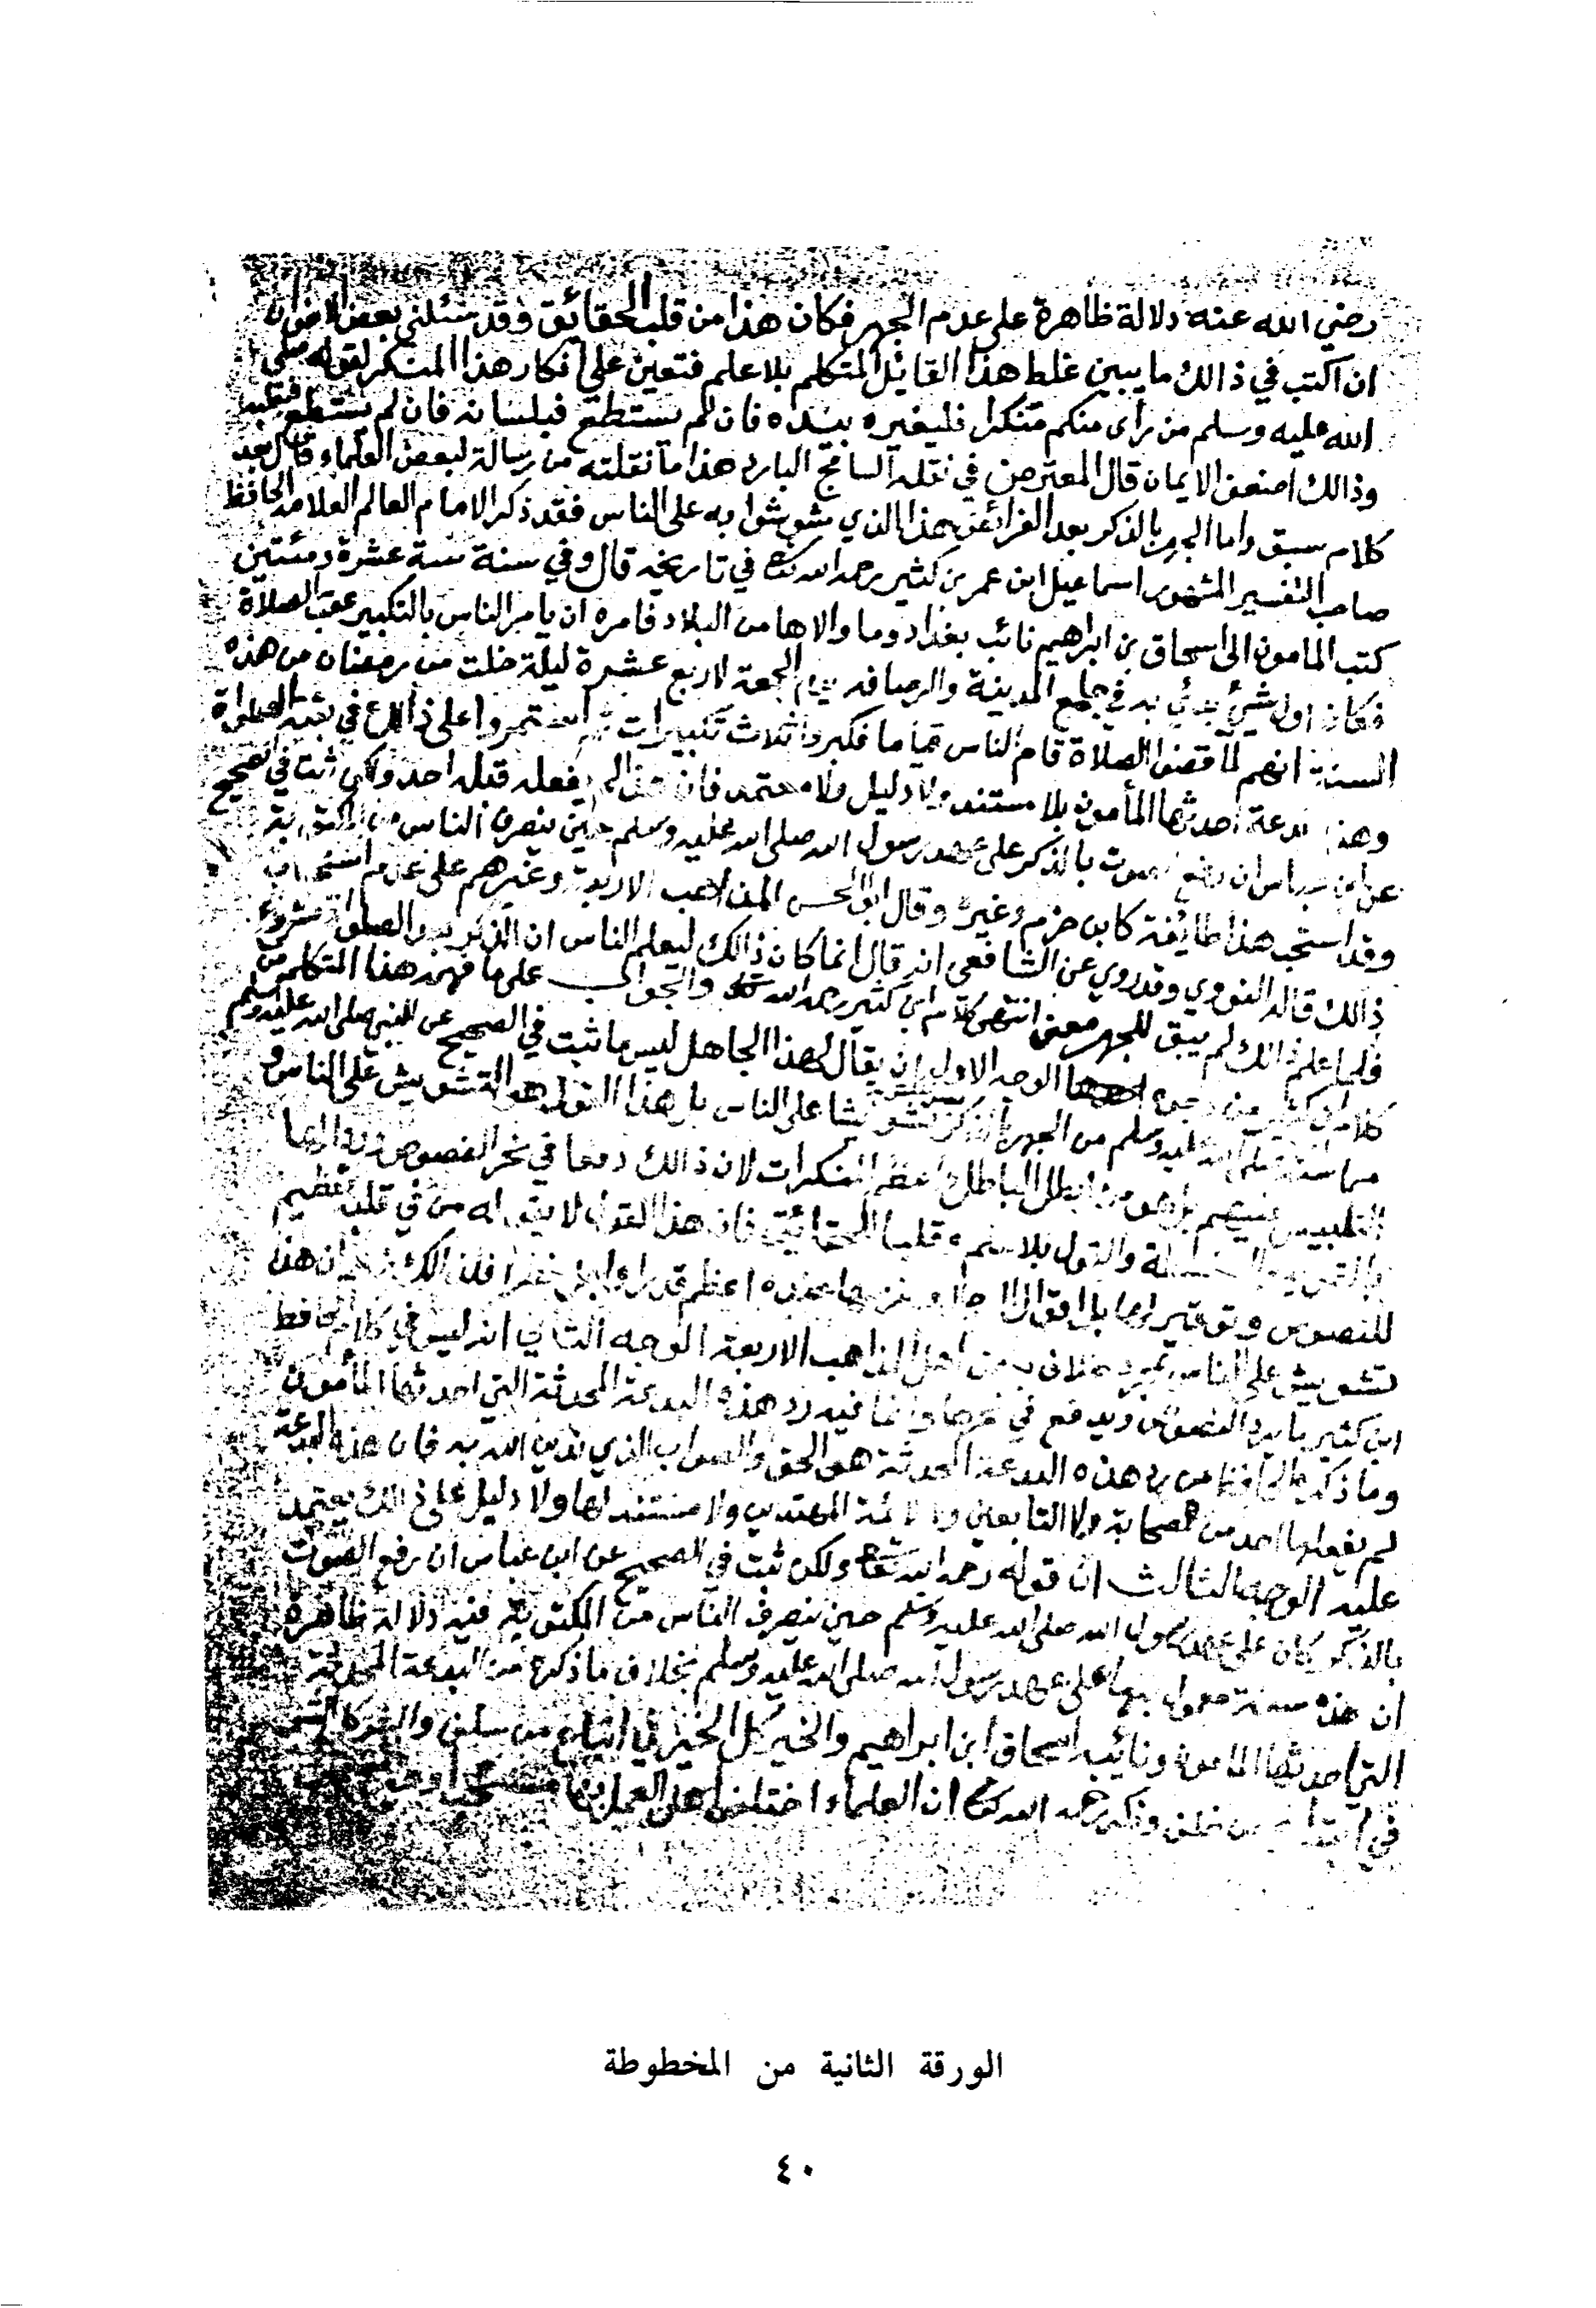 رضي الله عنه دلالة ظاهرة على عدم الجهر فكان هذا من قلب الحقائق وقد سئلني بعض الاخوان
ان اكتب في ذالك ما يبين غلط هذا القائل المتكلم بلا علم فتعين علي انكار هذا المنكر لقوله صلى
الله عليه وسلم من رأى منكم منكرا فليغيره بيده فان لم يستطع فبلسانه فان لم يستطع فبقلبه
وذالك اضعف الايمان قال المعترض في نقله السامج البارد هذا ما نقلته من رسالة لبعض العلماء قال بعد
كلام سبق واما الجهر بالذكر بعد الفرائض هذا الذي شوشوا به على الناس فقد ذكر الامام العالم العلامة الحافظ
صاحب التفسير المشهور اسماعيل ابن عمر بن كثير رحمه الله تعالى في تاريخه قال وفي سنة ستة عشرة ومئتين
كتب المامون الى اسحاق بن ابراهيم نائب بغداد وما والاها من البلاد فامره ان يامر الناس بالتكبير عقب الصلاة
فكان اول شيئ بدئي به في جامع المدينة والرصافه يوم الجمعة لاربع عشرة ليلة خلت من رمضان من هذه
السنة انهم لما قضوا الصلاة قام الناس قياما فكبروا ثلاث تكبيرات ثم استمروا على ذالك في بقية الصلوات
وهذه بدعة احدثها المأمون بلا مستند ولا دليل ولا معتمد فان هذا لم يفعله قبله احد ولكن ثبت في الصحيح
عن ابن عباس ان رفع الصوت بالذكر على عهد رسول الله صلى الله عليه وسلم حين ينصرف الناس من المكتوبة
وقد استحب هذا طائفة كابن حزم وغيره وقال ابن الحسن المذاهب الاربعة وغيرهم على عدم استحباب
ذالك قاله النووي وقد روي عن الشافعي انه قال انما كان ذالك ليعلم الناس ان الذكر بعد الصلوات مشروع
فلما علم ذالك لم يبق للجهر معنى انتهى كلام ابن كثير رحمه الله تعالى والجواب على ما فهمه هذا المتكلم من
كلام ابن كثير من وجوه الوجه الاول ان يقال لهذا الجاهل ليس ما ثبت في الصحيح عن النبي صلى الله عليه وسلم
من الجهر بالذكر تشويشا على الناس بل هذا القول هو التشويش على الناس و
التلبيس عليهم بل هو من ابطل الباطل واعظم المنكرات لان ذالك دفعا في نحر النصوص وردا لها
والقول بلا علم وقلبا للحقائق فان هذا القول لا يقوله من في قلبه تعظيم
للنصوص وتوقير لها بل عنده اعظم قدرا فلذالك زعم ان هذا
تشويش على الناس بمجرد خلاف من اهل المذاهب الاربعة الوجه الثاني انه ليس في كلام الحافظ
ابن كثير ما يرد النصوص ويدفع في نحرها وانما فيه رد هذه البدعة المحدثة التي احدثها المأمون
وما ذكره الحافظ من رد هذه البدعة المحدثة هو الحق والصواب الذي ندين الله به فان هذه البدعة
لم يفعلها احد من الصحابة ولا التابعين ولا الائمة المهتدين ولا مستند لها ولا دليل على ذالك يعتمد
عليه الوجه الثالث ان قوله رحمه الله تعالى ولكن ثبت في الصحيح عن ابن عباس ان رفع الصوت
بالذكر كان على عهد رسول الله صلى الله عليه وسلم حين ينصرف الناس من المكتوبة فيه دلالة ظاهرة
ان هذه سنة معمول بها على عهد رسول الله صلى الله عليه وسلم بخلاف ما ذكره من البدعة المحدثة
التي احدثها المامون ونائبه اسحاق ابن ابراهيم والخير كل الخير في اتباع من سلف والشر كل الشر
في ابتداع من خلف وذكر رحمه الله تعالى ان العلماء اختلفوا هل العمل بها مستحب او
الورقة الثانية من المخطوطة
٤٠